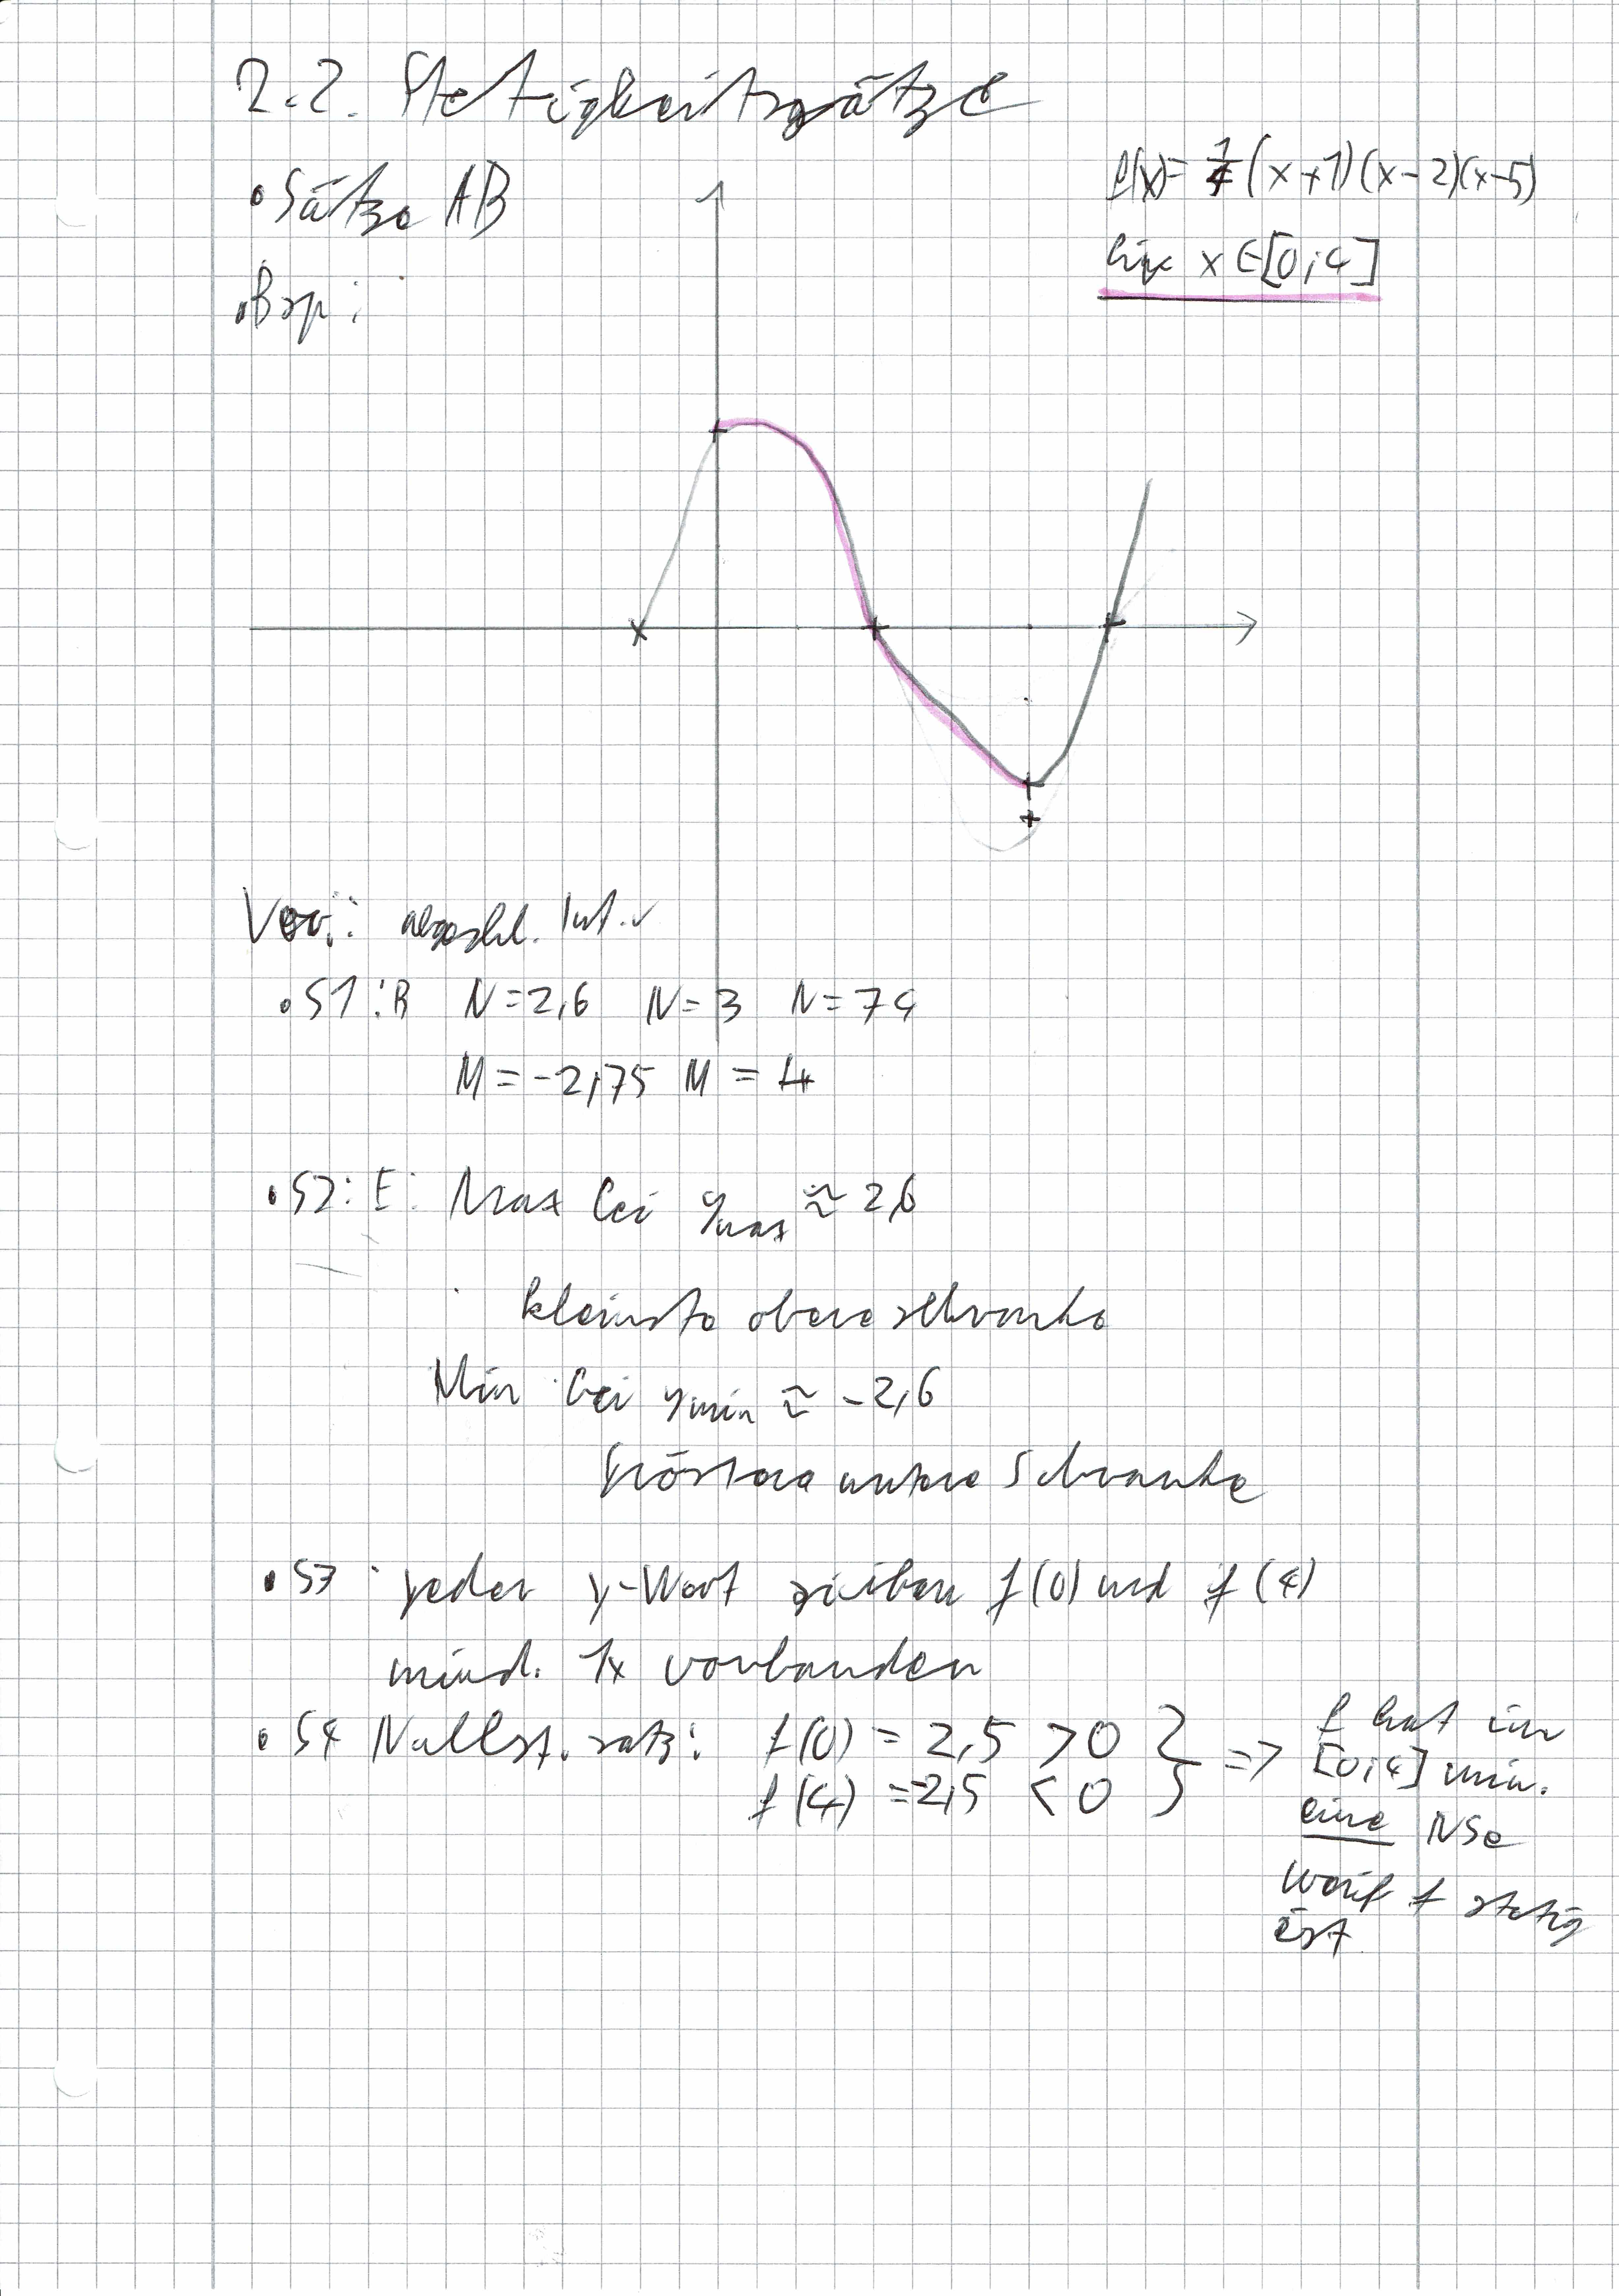 2.2. Stetigkeitssätze
• Sätze AB
f(x) = 1/4 (x+1)(x-2)(x-5)
für x ∈ [0;4]
• Bsp:
Vor.: abgeschl. Int. ✓
• S1: B N=2,6 N=3 N=74
M=-2,75 M=4
• S2: E: Max bei ymax ≈ 2,6
kleinste obere Schranke
Min bei ymin ≈ -2,6
grösste untere Schranke
• S3 jeder y-Wert zwischen f(0) und f(4)
mind. 1x vorhanden
• S4 Nullst.satz: f(0) = 2,5 > 0 } => f hat in
f(4) = -2,5 < 0 [0;4] min.
eine NSe
weil f stetig
ist